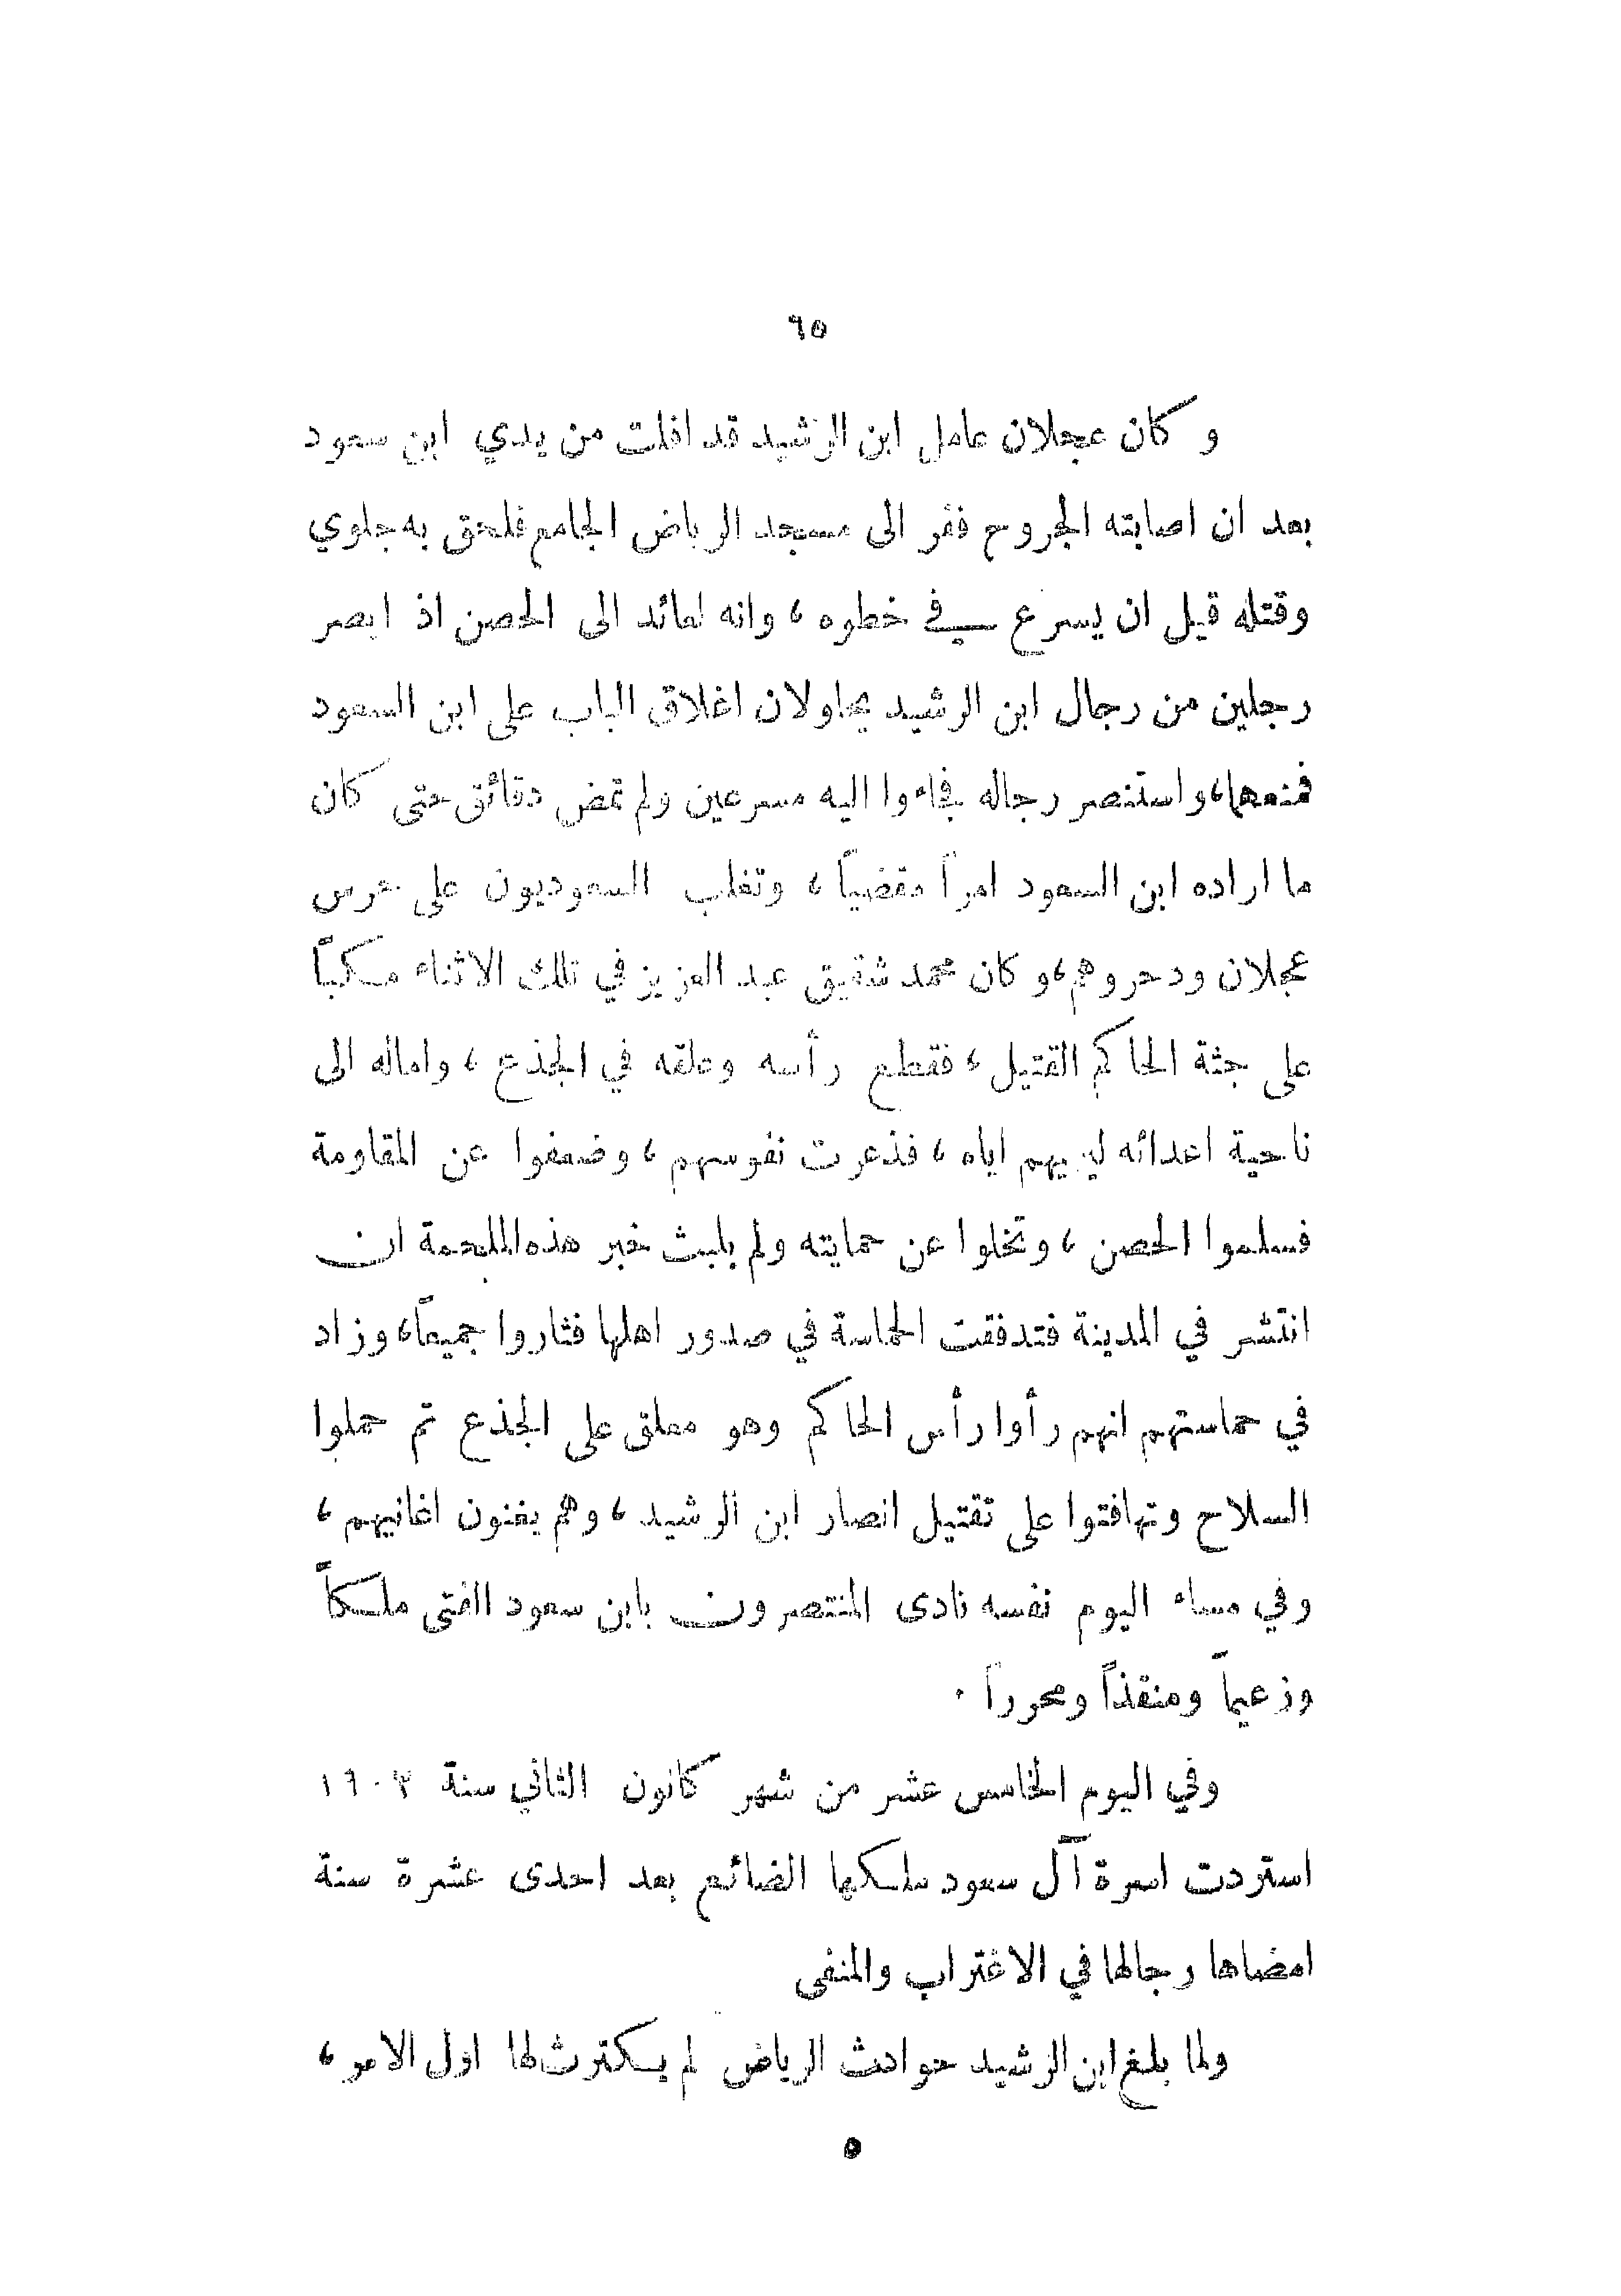 ٦٥
وكان عجلان عامل ابن الرشيد قد افلت من يدي ابن سعود
بعد ان اصابته الجروح ففر الى مسجد الرياض الجامع فلحق به جلوي
وقتله قبل ان يسرع في خطوه ، وانه لعائد الى الحصن اذ ابصر
رجلين من رجال ابن الرشيد يحاولان اغلاق الباب على ابن السعود
فمنعهما، واستنصر رجاله فجاءوا اليه مسرعين ولم تمض دقائق حتى كان
ما اراده ابن السعود امراً مقضياً ، وتغلب السعوديون على حرس
عجلان ودحروهم، وكان محمد شقيق عبد العزيز في تلك الاثناء مكباً
على جثة الحاكم القتيل ، فقطع رأسه وعلقه في الجذع ، واماله الى
ناحية اعدائه ليريهم اياه ، فذعرت نفوسهم ، وضعفوا عن المقاومة
فسلموا الحصن ، وتخلوا عن حمايته ولم يلبث خبر هذه الملحمة ان
انتشر في المدينة فتدفقت الحماسة في صدور اهلها فثاروا جميعاً، وزاد
في حماستهم انهم رأوا رأس الحاكم وهو معلق على الجذع ثم حملوا
السلاح وتهافتوا على تقتيل انصار ابن الرشيد ، وهم يغنون اغانيهم ،
وفي مساء اليوم نفسه نادى المنتصرون بابن سعود الفتى ملكاً
وزعيماً ومنقذاً ومحرراً .
وفي اليوم الخامس عشر من شهر كانون الثاني سنة ١٩٠٢
استردت اسرة آل سعود ملكها الضائع بعد احدى عشرة سنة
امضاها رجالها في الاغتراب والمنفى
ولما بلغ ابن الرشيد حوادث الرياض لم يكترث لها اول الامر ،
٥